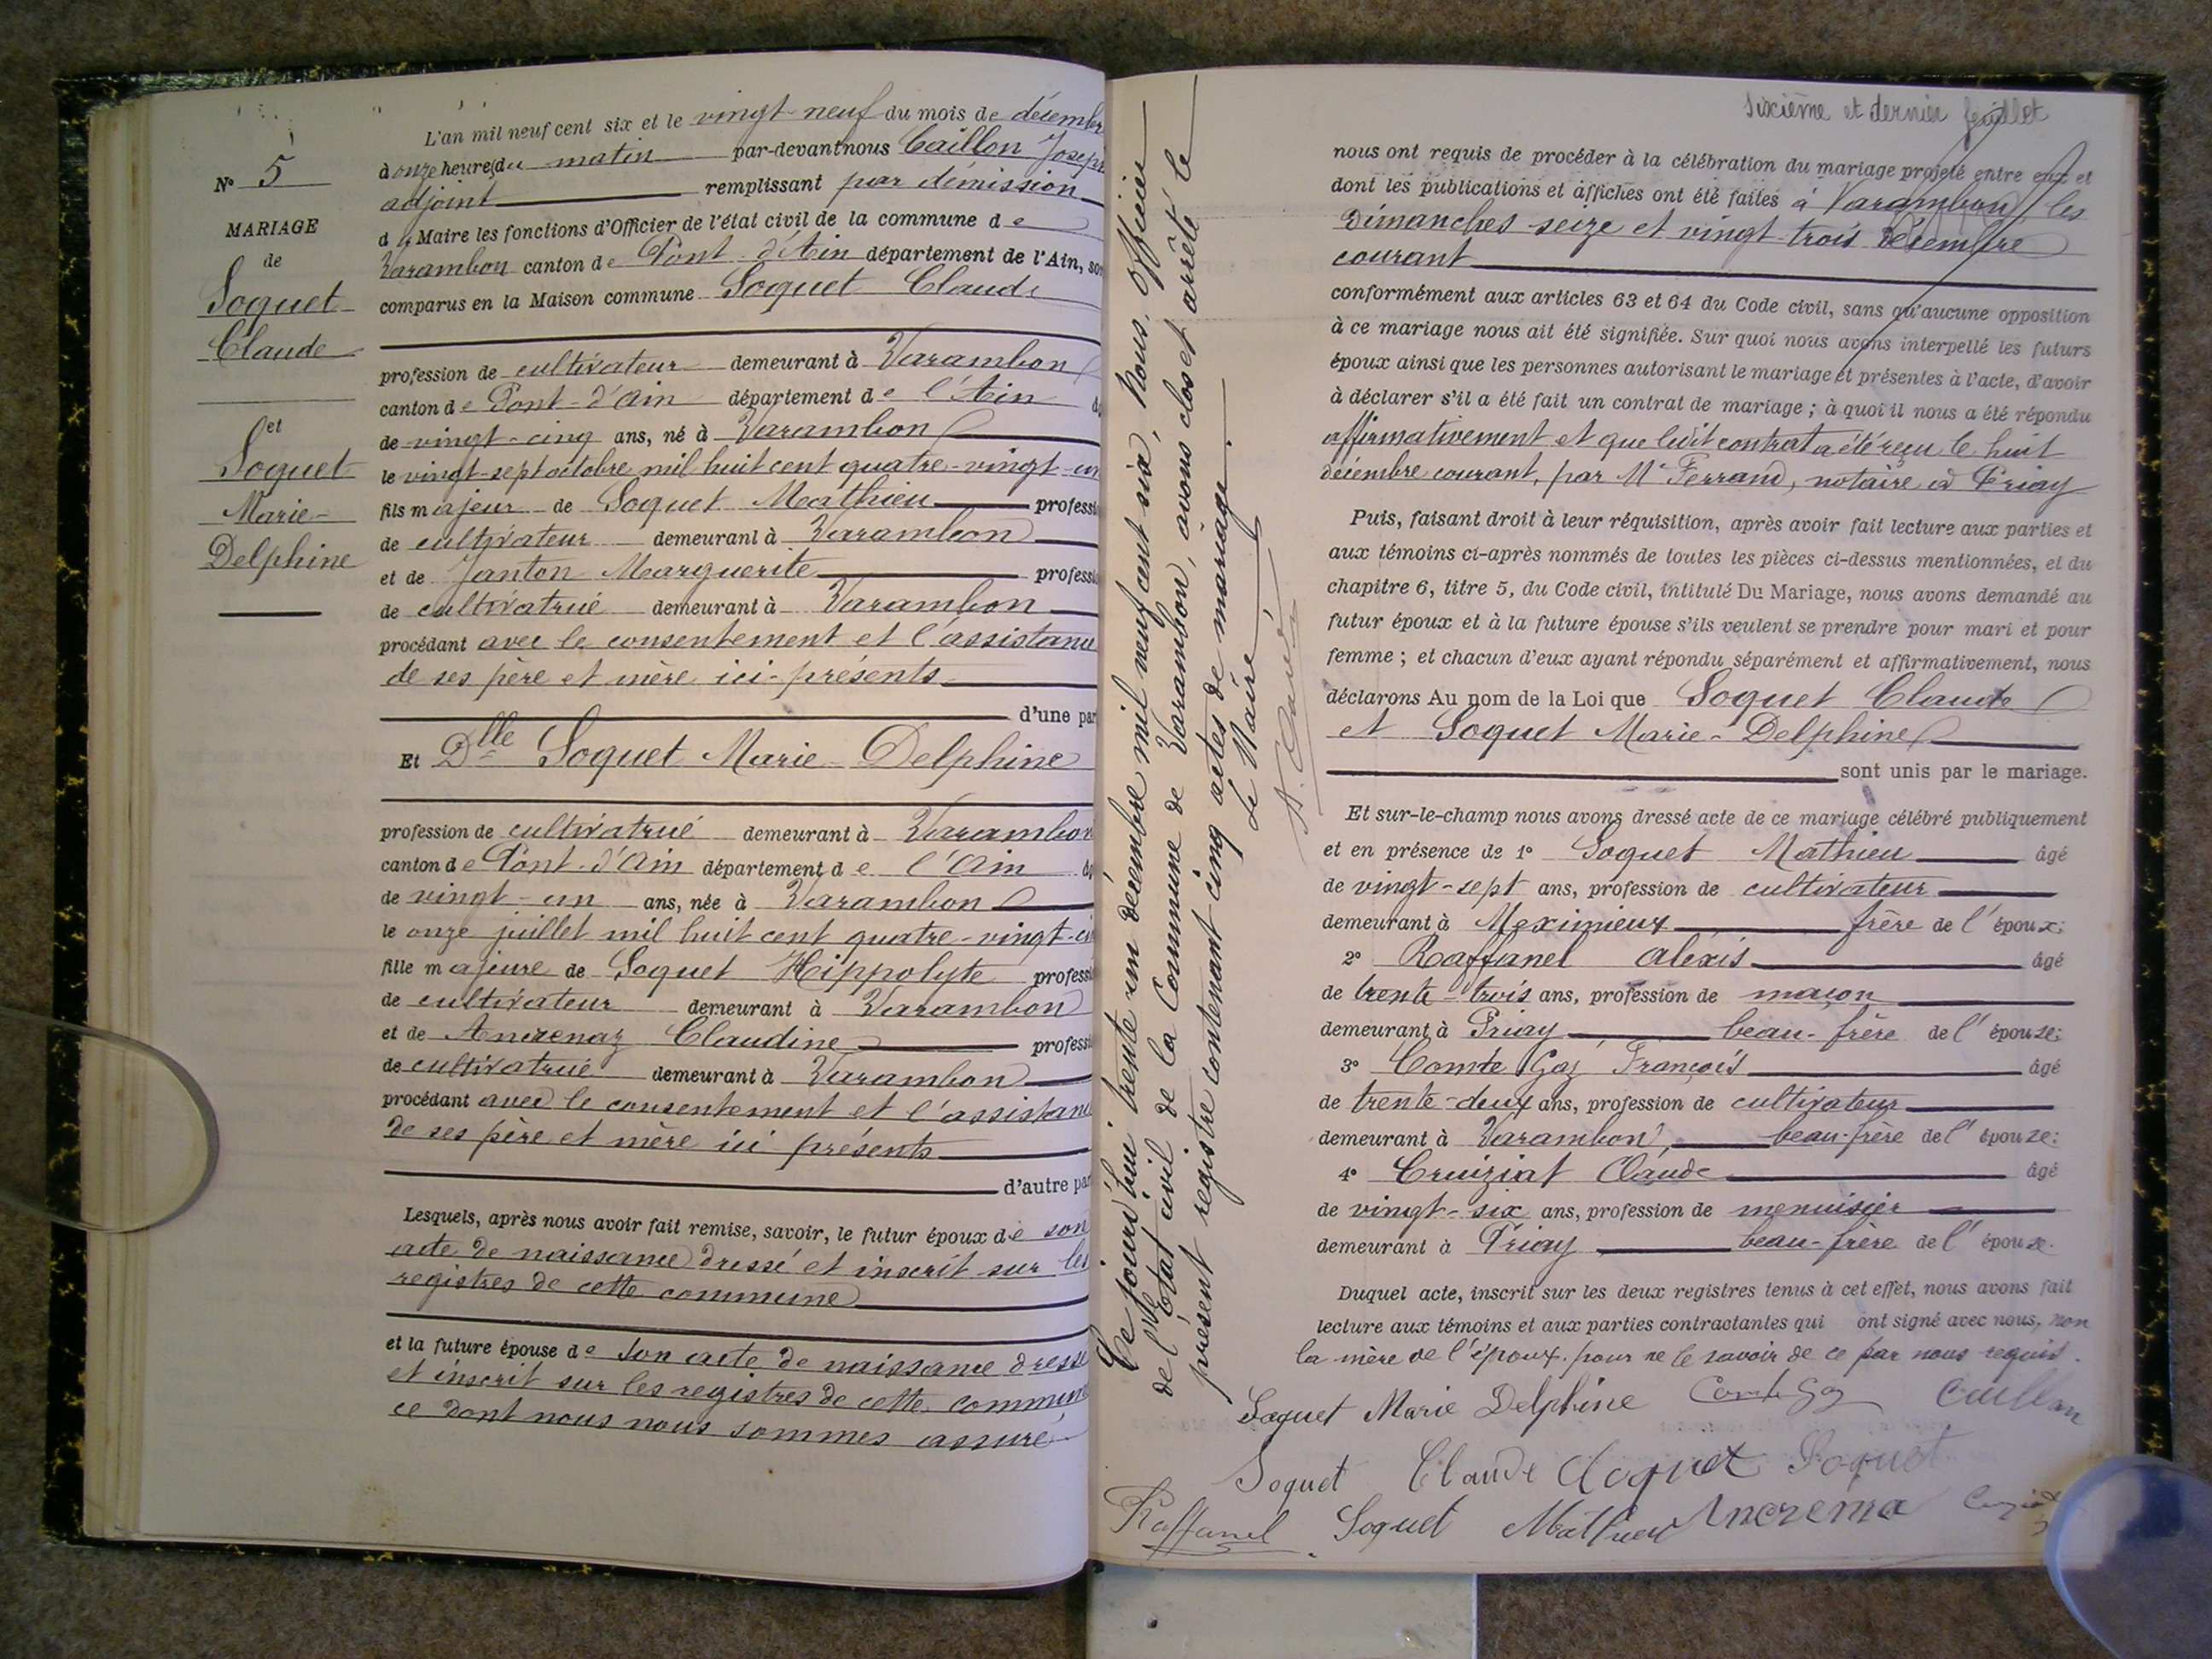 N° 5
MARIAGE
de
Soquet
Claude
et
Soquet
Marie-
Delphine
L'an mil neuf cent six et le vingt-neuf du mois de décembr
à onze heures du matin par-devant nous Caillon Joseph
adjoint remplissant par démission
d u Maire les fonctions d'Officier de l'état civil de la commune d e
Varambon canton de Pont-d'Ain département de l'Ain, son
comparus en la Maison commune Soquet Claude
profession de cultivateur demeurant à Varambon
canton de Pont-d'Ain département de l'Ain
de vingt-cinq ans, né à Varambon
le vingt-sept octobre mil huit cent quatre-vingt-un
fils majeur de Soquet Mathieu professi
de cultivateur demeurant à Varambon
et de Janton Marguerite professi
de cultivatrice demeurant à Varambon
procédant avec le consentement et l'assistance
de ses père et mère ici-présents
d'une par
Et Dlle Soquet Marie-Delphine
profession de cultivatrice demeurant à Varambon
canton de Pont-d'Ain département de l'Ain
de vingt-un ans, née à Varambon
le onze juillet mil huit cent quatre-vingt-ci
fille majeure de Soquet Hippolyte professi
de cultivateur demeurant à Varambon
et de Ancrenaz Claudine professi
de cultivatrice demeurant à Varambon
procédant avec le consentement et l'assistance
de ses père et mère ici présents
d'autre par
Lesquels, après nous avoir fait remise, savoir, le futur époux de son
acte de naissance dressé et inscrit sur les
registres de cette commune
et la future épouse de son acte de naissance dressé
et inscrit sur les registres de cette commune
ce dont nous nous sommes assuré
Ce jourd'hui trente un décembre mil neuf cent six, Nous, officier
de l'Etat civil de la Commune de Varambon, avons clos et arrêté le
présent registre contenant cinq actes de mariage.
Le Maire
Sixième et dernier feuillet
nous ont requis de procéder à la célébration du mariage projeté entre eux et
dont les publications et affiches ont été faites à Varambon les
Dimanches seize et vingt-trois décembre
courant
conformément aux articles 63 et 64 du Code civil, sans qu'aucune opposition
à ce mariage nous ait été signifiée. Sur quoi nous avons interpellé les futurs
époux ainsi que les personnes autorisant le mariage et présentes à l'acte, d'avoir
à déclarer s'il a été fait un contrat de mariage ; à quoi il nous a été répondu
affirmativement et que ledit contrat a été reçu le huit
décembre courant, par Me Ferrand, notaire à Priay
Puis, faisant droit à leur réquisition, après avoir fait lecture aux parties et
aux témoins ci-après nommés de toutes les pièces ci-dessus mentionnées, et du
chapitre 6, titre 5, du Code civil, intitulé Du Mariage, nous avons demandé au
futur époux et à la future épouse s'ils veulent se prendre pour mari et pour
femme ; et chacun d'eux ayant répondu séparément et affirmativement, nous
déclarons Au nom de la Loi que Soquet Claude
et Soquet Marie-Delphine
sont unis par le mariage.
Et sur-le-champ nous avons dressé acte de ce mariage célébré publiquement
et en présence de 1° Soquet Mathieu âgé
de vingt-sept ans, profession de cultivateur
demeurant à Meximieux frère de l'époux;
2° Raffanel Alexis âgé
de trente-trois ans, profession de maçon
demeurant à Priay beau-frère de l'épouse;
3° Comte Gaz François âgé
de trente-deux ans, profession de cultivateur
demeurant à Varambon, beau-frère de l'épouse;
4° Cruiziat Claude âgé
de vingt-six ans, profession de menuisier
demeurant à Priay beau-frère de l'épouse.
Duquel acte, inscrit sur les deux registres tenus à cet effet, nous avons fait
lecture aux témoins et aux parties contractantes qui ont signé avec nous, non
la mère de l'époux pour ne le savoir de ce par nous requis.
Soquet Marie Delphine Comte Gaz Caillon
Soquet Claude Soquet Soquet
Raffanel Soquet Mathieu Ancrema